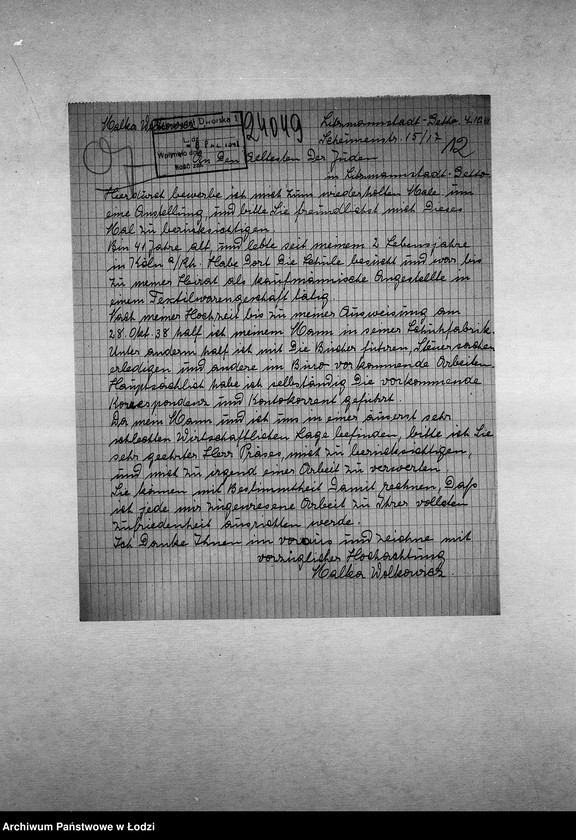 Malka Wolkowicz Dworska 1
24049
Litzmannstadt-Getto. 4.12.
Scheunenstr. 15/17
12
An den Aeltesten der Juden
in Litzmannstadt-Getto
Hierdurch bewerbe ich mich zum wiederholten Male um
eine Anstellung, und bitte Sie freundlichst mich dieses
Mal zu berücksichtigen.
Bin 41 Jahre alt und lebte seit meinem 2 Lebensjahre
in Köln a/Rh. Habe dort die Schule besucht und war bis
zu meiner Heirat als kaufmännische Angestellte in
einem Textilwarengeschäft tätig.
Nach meiner Hochzeit bis zu meiner Ausweisung am
28. Okt. 38 half ich meinem Mann in seiner Schuhfabrik.
Unter anderm half ich mit die Bücher führen, Steuersachen
erledigen und andere im Büro vorkommende Arbeiten.
Hauptsächlich habe ich selbständig die vorkommende
Korrespondenz und Kontokorrent geführt.
Da mein Mann und ich uns in einer äuserst sehr
schlechten Wirtschaftlichen Lage befinden, bitte ich Sie
sehr geehrter Herr Präses, mich zu berücksichtigen,
und mich zu irgend einer Arbeit zu verwerten.
Sie können mit Bestimmtheit damit rechnen, daß
ich jede mir zugewiesene Arbeit zu Ihrer vollsten
Zufriedenheit ausrichten werde.
Ich danke Ihnen im voraus und zeichne mit
vorzüglicher Hochachtung
Malka Wolkowicz.
Archiwum Państwowe w Łodzi